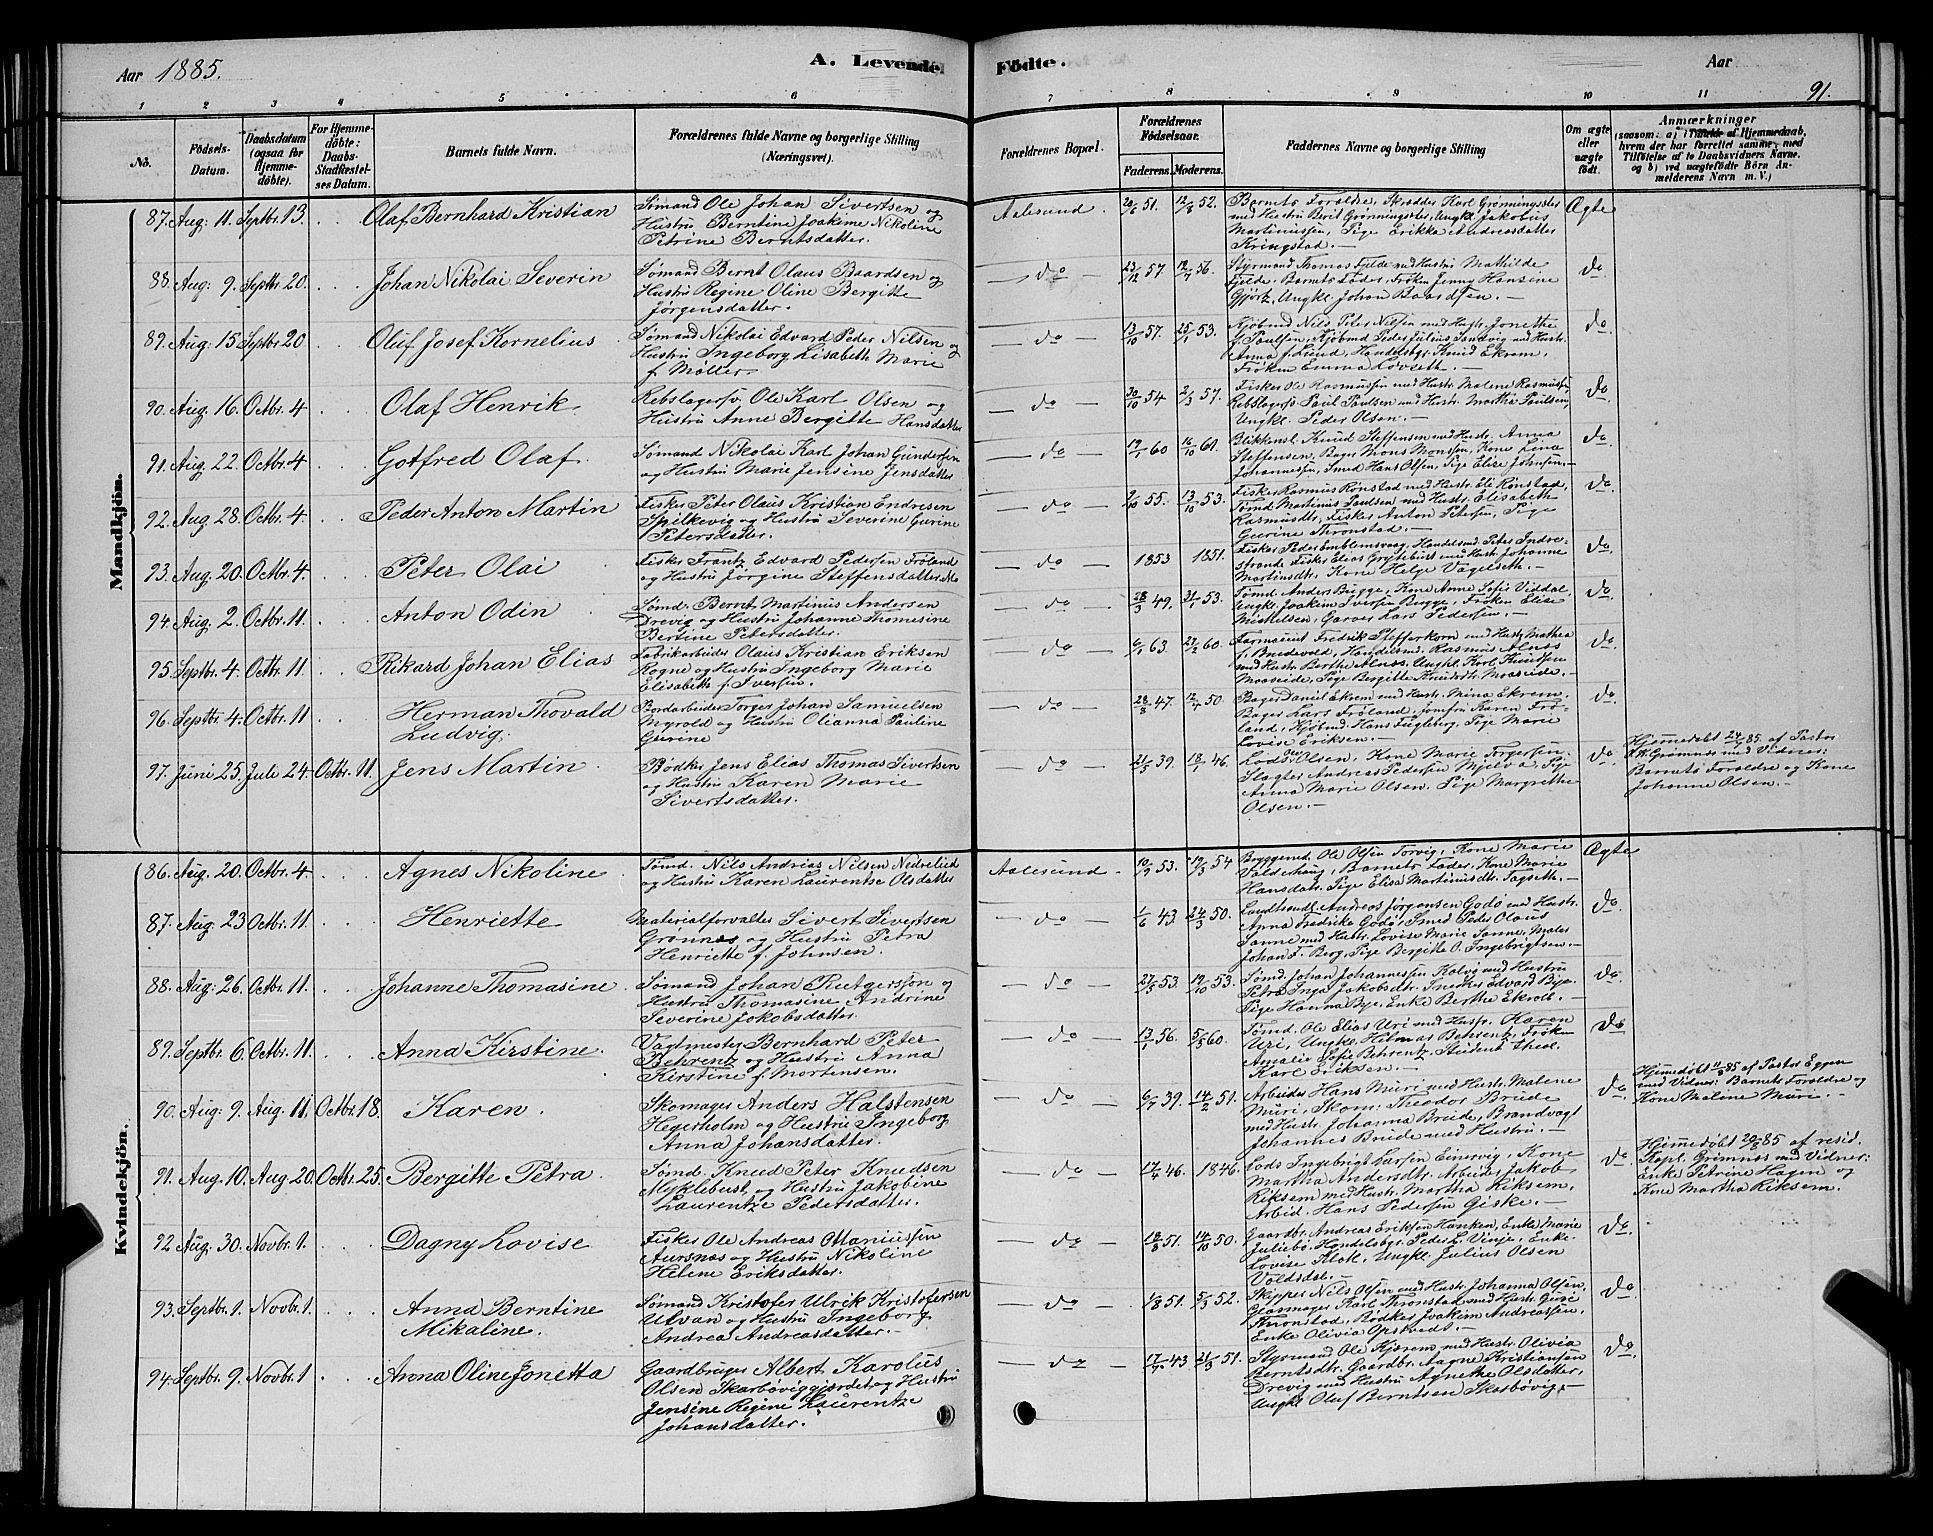 Aar 1885.
A. Levende Fødte.
Aar
91.
1 2 3 4 5 6 7 8 9 10 11
No.
Fødsels-Datum.
Daabsdatum (ogsaa for Hjemmedøbte).
For Hjemmedøbte: Daabs-Stadfæstelses Datum.
Barnets fulde Navn.
Forældrenes fulde Navne og borgerlige Stilling (Næringsvei).
Forældrenes Bopæl.
Forældrenes Fødselsaar.
Faderens. Moderens.
Faddernes Navne og borgerlige Stilling
Om ægte eller uægte født.
Anmærkninger
(saasom: a) i Tilfælde af Hjemmedaab,
hvem der har forrettet samme, med
Tilføielse af to Daabsvidners Navne.
og b) ved uægtefødte Børn Anmelderens Navn m. V.)
Mandkjön.
87. Aug: 11. Septbr. 13. Olaf Bernhard Kristian
Sømand Ole Johan Sivertsen og
Hustru Berntine Joakime Nikoline
Petrine Berntsdatter.
Aalesund. 20/6 51. 12/8 52.
Barnets Forældre, Skrædder Karl Grønningsæter
med Hustru Berit Grønningsæter, Ungkl. Jakobus
Martinussen, Pige Erikka Andreasdatter
Kringstad.
Ægte
88. Aug: 9. Septbr. 20. Johan Nikolai Severin
Sømand Bernt Olaus Baardsen og
Hustru Regine Oline Bergitte
Jørgensdatter.
do 23/12 57. 12/7 56.
Styrmand Thomas Fjelde med Hustru Mathilde
Fjelde, Barnets Fader, Frøken Jenny Hansine
Gjørtz, Ungkl. Johan Baardsen.
do
89. Aug: 15 Septbr 20 Oluf Josef Kornelius
Sømand Nikolai Edvard Peder Nilsen og
Hustru Ingeborg Lisabeth Marie
f. Møller.
do 13/10 57. 25/1 53.
Kjøbmd Nils Peter Nilsen med Hustr. Jonethe
f. Paulsen, Kjøbmd Peder Julius Sandvig med Hustr.
Anna f. Lund, Handelsbgr. Knud Ekrem,
Frøken Emma Løvseth.
do
90. Aug: 16. Octbr. 4 Olaf Henrik
Rebslagersv. Ole Karl Olsen og
Hustru Anne Bergitte Hansdatter
do 30/10 54 2/3 57.
Fisker Ole Rasmussen med Hustr. Malene Rasmussen,
Rebslagersv. Paul Paulsen med Hustr. Martha Paulsen,
Ungkl. Peder Olsen.
do
91. Aug. 22. Octbr. 4 Gotfred Olaf
Sømand Nikolai Karl Johan Gundersen
og Hustru Marie Jensine Jensdatter
do 19/1 60 16/10 60.
Blikkensl. Knud Steffensen med Hustr. Anna
Steffensen, Bager Mons Monsen, Kone Lina
Johannessen, Smed Hans Olsen, Pige Elise Johnsen.
do
92. Aug. 28. Octbr. 4. Peder Anton Martin
Fisker Peter Olaus Kristian Endresen
Spilkevig og Hustru Severine Gurine
Petersdatter.
do 9/10 55. 13/10 53.
Fisker Rasmus Rønstad med Hustr. Eli Rønstad,
Tømd Martinus Paulsen med Hustr. Elisabeth
Rasmusdtr., Fisker Anton Petersen, Pige
Gurine Thronstad.
do
93. Aug. 20. Octbr. 4. Peter Olai
Fisker Frantz Edvard Pedersen Frøland
og Hustru Jørgine Steffensdatter
do 1853 1851.
Fisker Peder Emblemsvaag, Handelsmd. Peter Indrestrande
Fisker Elias Grytebust med Hustr. Johanne
Martinsdtr., Kone Helge Vagelseth.
do
94. Aug. 2. Octbr. 11. Anton Odin
Tømd. Bernt Martinus Andersen
Drevig og Hustru Johanne Thomesine
Bertine Petersdatter.
do 28/3 49. 21/1 53.
Tømd. Anders Bugge, Kone Anne Sofie Viddal,
Ungkl. Joakim Iversen Bugge, Frøken Elise
Mikkelsen, Garver Lars Pedersen.
do
95. Septbr. 4. Octbr. 11 Rikard Johan Elias
Fabrikarbeider Olaus Kristian Eriksen
Rogne og Hustru Ingeborg Marie
Elisabeth f. Iversen.
do 6/1 63. 27/2 60.
Farmaceut Fredrik Pfefferkorn med Hustr. Mathea
f. Brudevold, Handelsmd. Rasmus Alnæs
med Hustr. Berthe Alnæs, Ungkl. Karl Knutsen
Maaseide, Pige Bergitte Knudsdtr. Maaseide.
do
96. Septbr. 4. Octbr. 11 Herman Thovald
Ludvig.
Bordarbeider Torger Johan Samuelsen
Myrold og Hustru Olianna Pauline
Gurine
do 28/8 47. 12/4 50.
Bager Daniel Ekrem med Hustr. Mina Ekrem,
Bager Lars Frøland, Jomfru Karen Frøland,
Kjøbmd. Hans Fugleberg, Pige Marie
Lovise Eriksen.
do
97. Juni 25. Jule 24. Octbr. 11. Jens Martin
Bødker Jens Elias Thomas Sivertsen
og Hustru Karen Marie
Sivertsdatter.
do 21/5 39. 18/1 46.
Lods Ole Olsen, Kone Marie Torgersen,
Slagter Andreas Pedersen Mjelva, Pige
Anna Marie Olsen, Pige Margrethe
Olsen.
do
Hjemmedøbt 24/7 85. af Pastor
Grimnæs med Vidner:
Barnets Forældre og Kone
Johanne Olsen.
Kvindekjön.
86. Aug. 20. Octbr. 4 Agnes Nikoline
Tømd. Nils Andreas Nilsen Nedrelid
og Hustru Karen Laurentse Olsdatter
Aalesund. 10/9 53. 19/3 54
Bryggemd. Ole Olsen Torvig, Kone Marie
Valderhaug, Barnets Fader, Kone Marie
Hansdatr. Pige Elisa Martinusdtr. Fagseth.
Ægte
87. Aug: 23 Octbr. 11. Henriette
Materialforvalter Sivert Sivertsen
Grønnæs og Hustru Petra
Henriette f. Johnsen.
do 1/6 43. 24/3 50.
Landhandl. Andreas Jørgensen Godø med Hustr.
Anna Fredrike Godø, Smed Peder Olaus
Sanne med Hustr. Lovise Marie Sanne, Maler
Johan F. Berg, Pige Bergitte O. Ingebrigtsen.
do
88. Aug: 26. Octbr. 11. Johanne Thomasine
Sømand Johan Rutgersson og
Hustru Thomasine Andrine
Severine Jakobsdatter.
do 27/5 53. 19/10 53.
Tømd. Johan Johannessen Kalvø med Hustru
Petra Inga Jakobsdtr. Snedker Edvard Bye.
Pige Hanna Bye, Enke Berthe Ekroll.
do
89. Septbr. 6. Octbr. 11. Anna Kirstine.
Vagtmester Bernhard Peter
Behrentz og Hustru Anna
Kirstine f. Mortensen.
do 13/1 56. 5/8 60.
Tømd. Ole Elias Uri med Hustr. Karen
Uri, Ungkl. Hilmar Behrentz, Frøken
Amalie Sofie Behrentz, Student Theol.
Karl Eriksen.
do
90. Aug: 9. Aug. 11. Octbr. 18. Karen.
Skomager Anders Halstensen
Hegerholm og Hustru Ingeborg
Anna Johansdatter.
do 6/7 39. 14/2 51.
Arbeider Hans Muri med Hustr. Malene
Muri, Skom. Theodor Brude
med Hustr. Johanna Brude, Brandvagt
Johannes Brude med Hustru.
do
Hjemmedøbt 11/8 85 af Pastor Eggen
med Vidner: Barnets Forældre og
Kone Malene Muri.
91. Aug. 10. Aug. 20. Octbr. 25. Bergitte Petra.
Tømd. Knud Peter Knudsen
Myklebust og Hustru Jakobine
Laurentze Pedersdatter.
do 17/4 46. 1846.
Lods Ingebrigt Larsen Einervig, Kone
Martha Andersdtr. Arbeider Jakob
Riksem med Hustr. Martha Riksem,
Arbeid. Hans Pedersen Giske.
do
Hjemmedøbt 20/8 85 af resid.
Kapl. Grimnæs med Vidner:
Enke Petrine Hagen og
Kone Martha Riksem.
92 Aug. 30. Novbr. 1. Dagny Lovise
Fisker Ole Andreas Ottaniussen
Aursnæs og Hustru Nikoline
Helene Eriksdatter.
do 18/8 51. 14/10 50.
Gaardbr. Andreas Eriksen Hanken, Enke Marie
Juliebø, Handelsbgr. Peder L. Vinje, Enke
Lovise Klok, Ungkl. Julius Olsen
Voldsdal.
do
93. Septbr. 1. Novbr. 1. Anna Berntine
Mikaline.
Sømand Kristofer Ulrik Kristofersen
Utvær og Hustru Ingeborg
Andrea Andreasdatter.
do 1/8 51. 5/3 52.
Skipper Nils Olsen med Hustr. Johanna Olsen,
Glasmager Karl Thronstad med Hustr. Guri
Thronstad, Bødker Joakim Andreassen,
Enke Olivia Opstvedt.
do
94. Septbr. 9. Novbr. 1 Anna Oline Jonetta
Gaardbruger Albert Karolus
Olsen Skarbøviggjærdet og Hustru
Jensine Regine Laurentze
Johansdatter.
do 17/7 43 21/3 51.
Styrmand Ole Kjærem med Hustr. Olivia
Berntsdtr. Gaardbr. Aagne Kristiansen
Drevig med Hustru Agnethe Olsdatter,
Ungkl. Oluf Berntsen Skarbøvig.
do